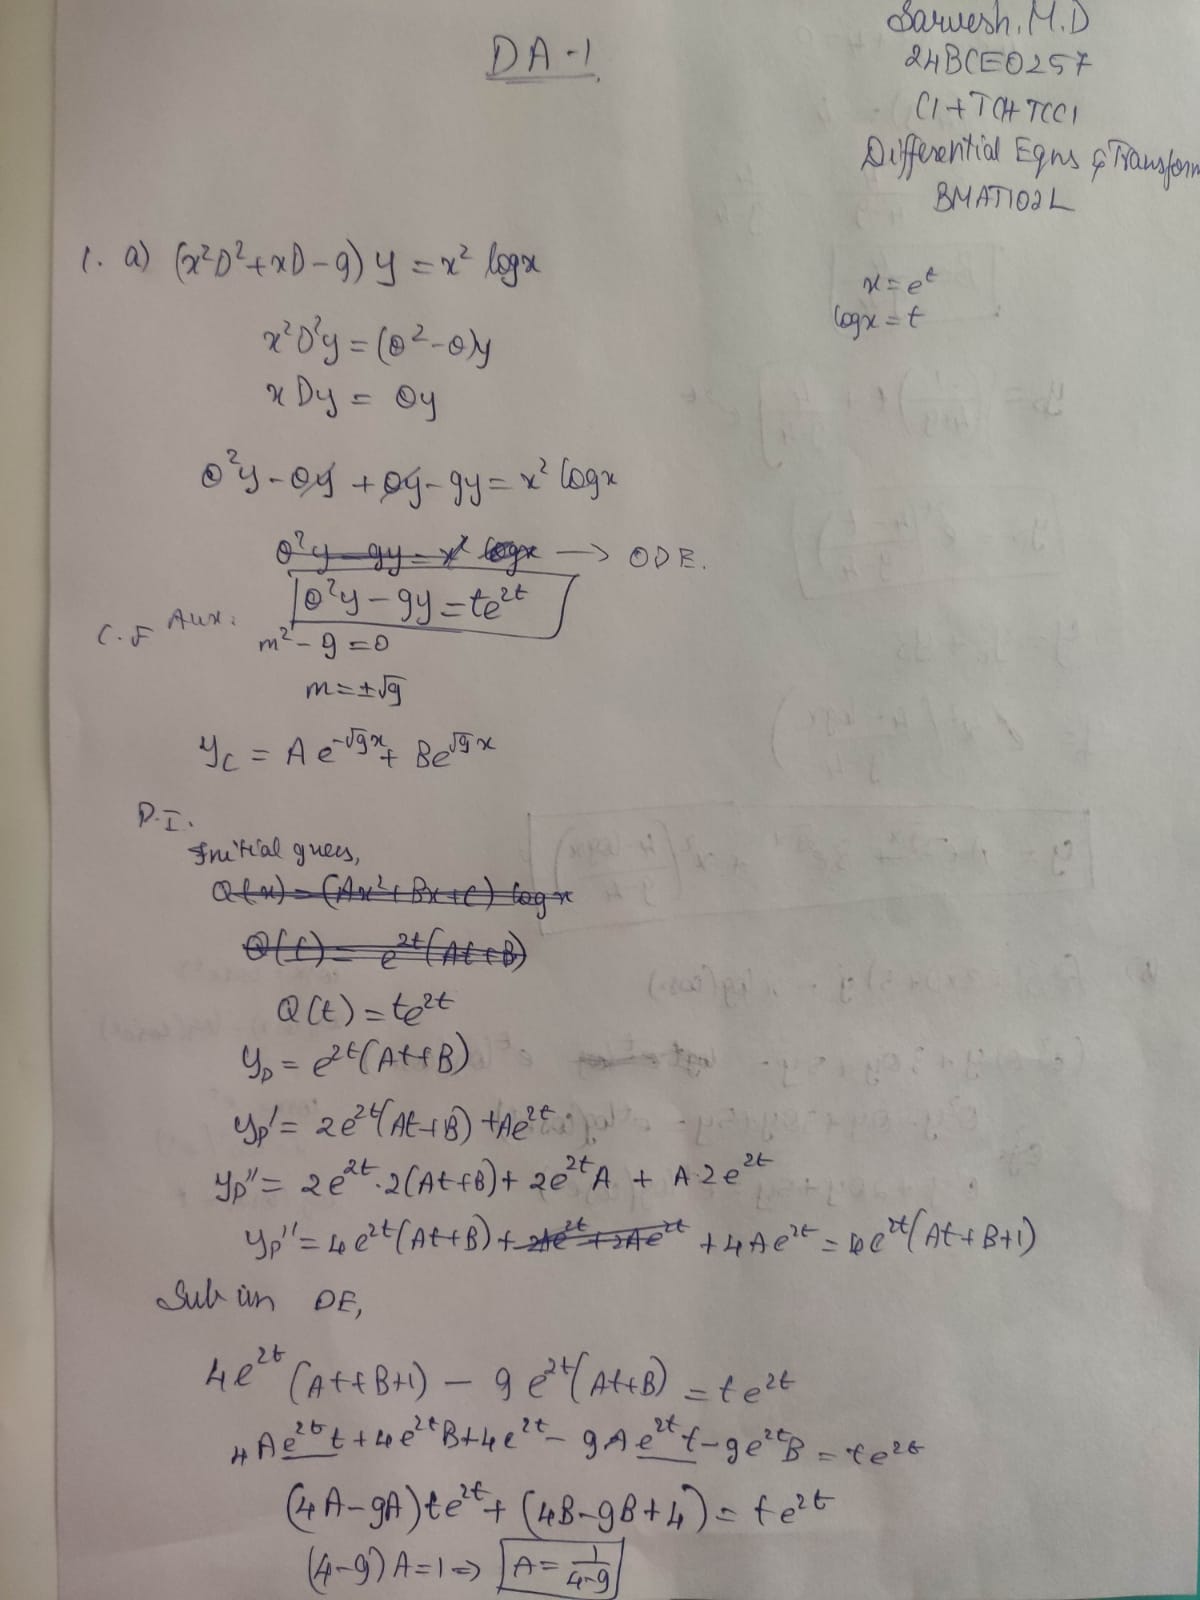 DA-1
Sarvesh. M.D
24BCE0257
C1+TC1+TCC1
Differential Eqns & Transform
BMAT102L
1. a) (x²D²+xD-9) y = x² logx
x = e^t
logx = t
x²D²y = (θ²-θ)y
xDy = θy
θ²y - θy + θy - 9y = x² logx
θ²y - 9y = x² logx → ODE.
θ²y - 9y = te^2t
C.F Aux:
m² - 9 = 0
m = ±√9
y_c = A e^-√9x + Be^√9x
P.I.
Initial guess,
Q(x) = (Ax²+Bx+C) logx
Q(t) = e^2t(At+B)
Q(t) = te^2t
y_p = e^2t(At+B)
y_p' = 2e^2t(At+B) + Ae^2t
y_p'' = 2e^2t.2(At+B) + 2e^2t A + A.2e^2t
y_p'' = 4e^2t(At+B) + 2Ae^2t + 2Ae^2t + 4Ae^2t = 4e^2t(At+B+1)
Sub in DE,
4e^2t (At+B+1) - 9e^2t(At+B) = te^2t
4Ae^2t t + 4e^2t B + 4e^2t - 9Ae^2t t - 9e^2t B = te^2t
(4A-9A)te^2t + (4B-9B+4) = te^2t
(4-9)A = 1 ⇒ A = 1/4-9